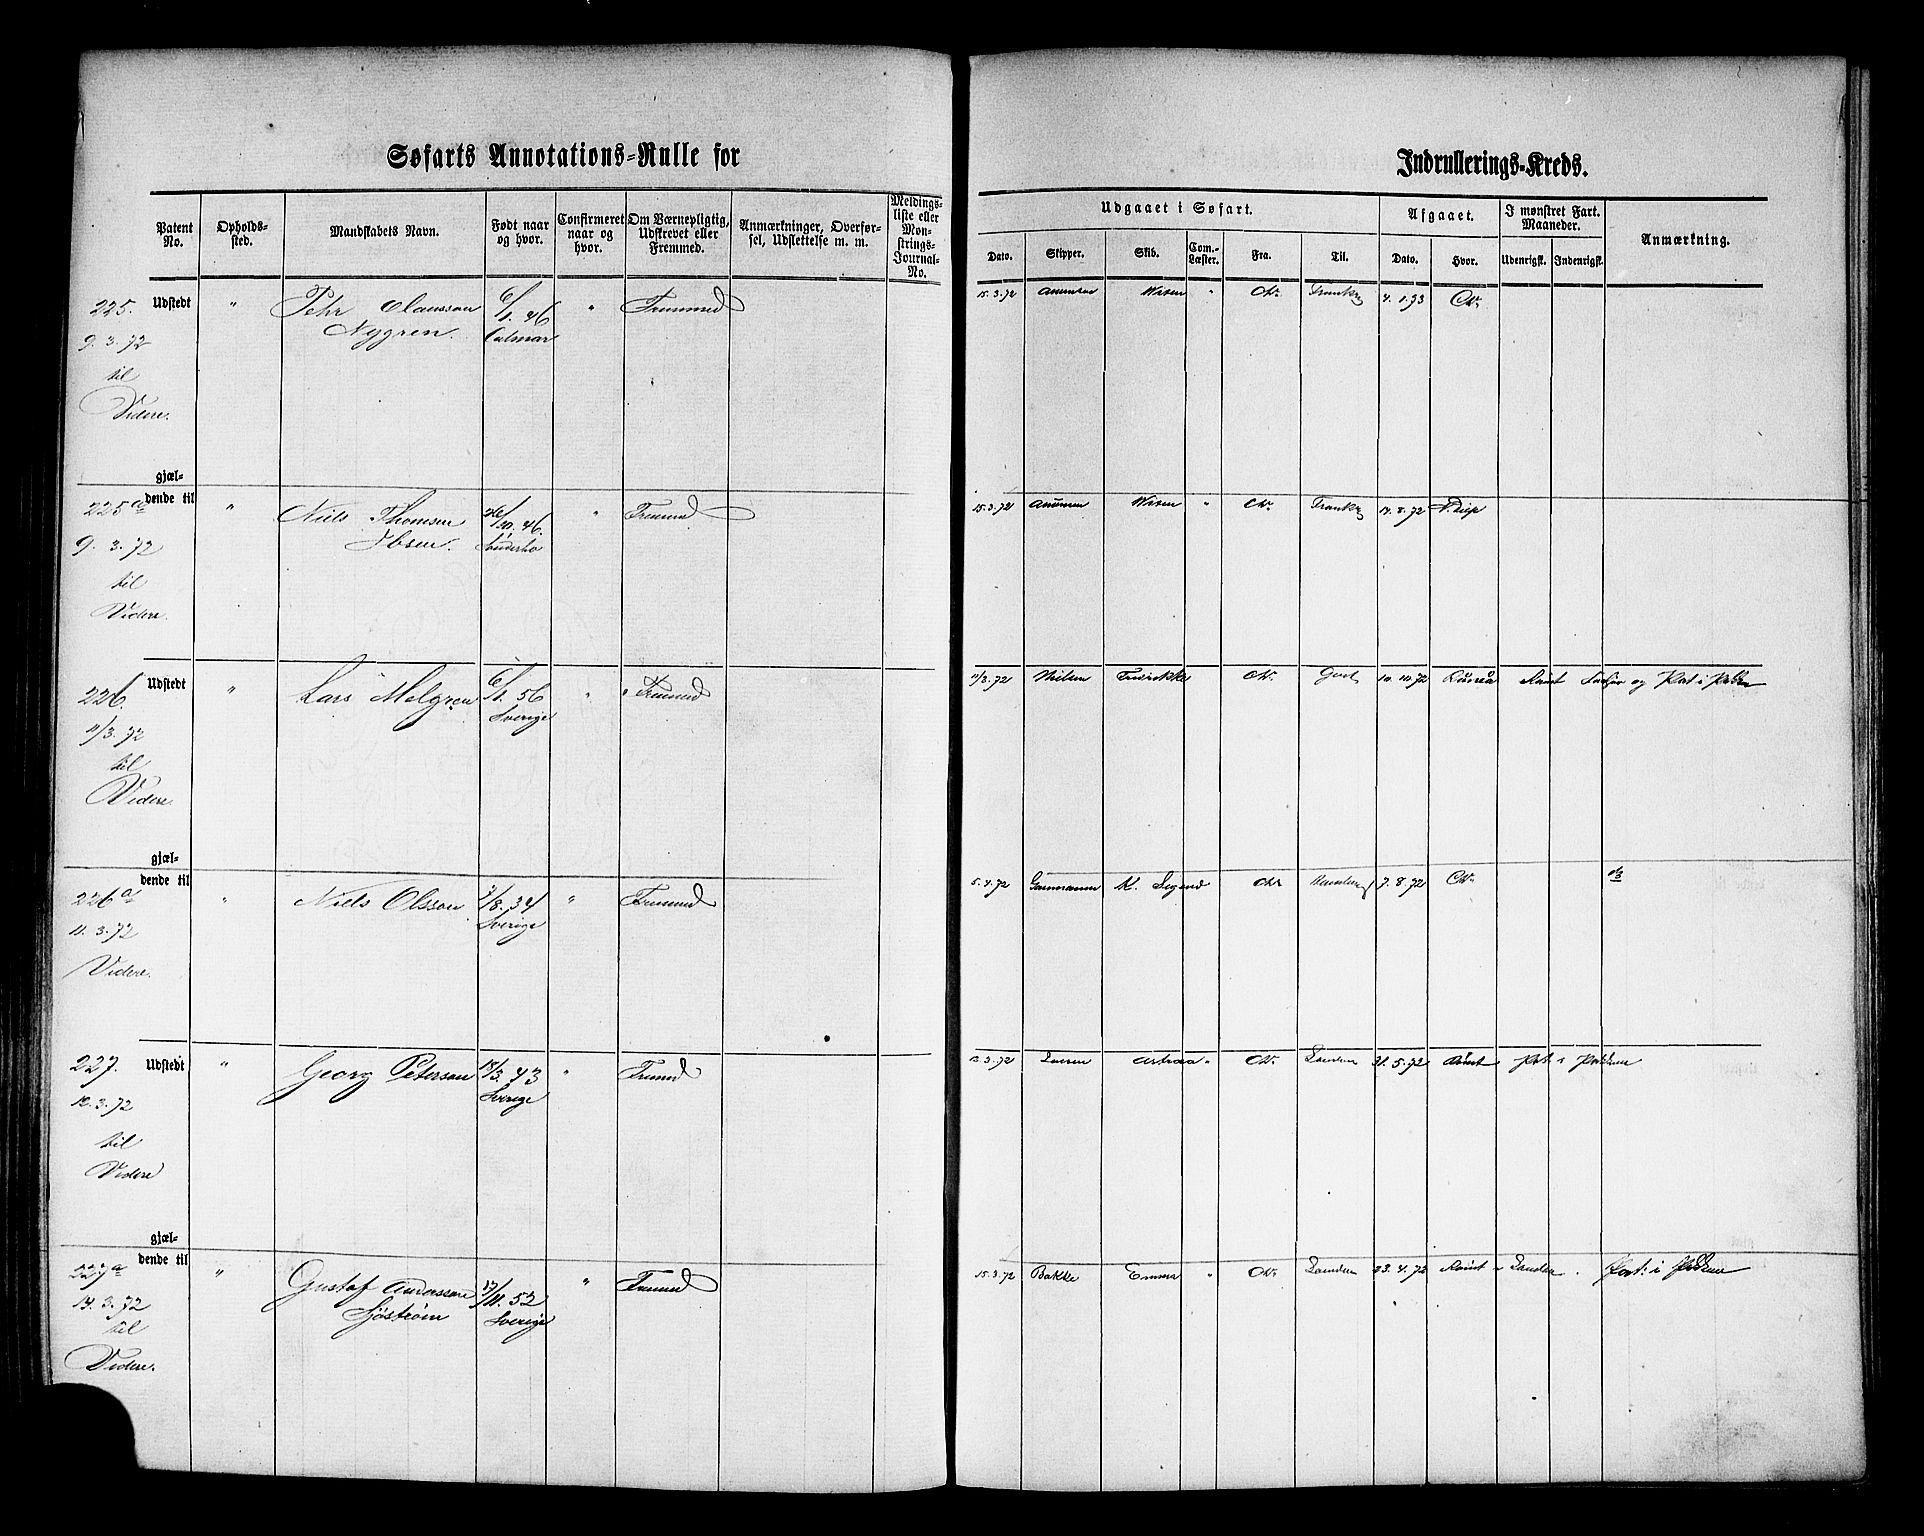 Søfarts Annotations-Rulle for
Indrullerings-Kreds.
Patent No.
Opholds-sted.
Mandskabets Navn.
Født naar og hvor.
Confirmeret naar og hvor.
Om Værnepligtig, Udskrevet eller Fremmed.
Anmærkninger, Overførsel, Udslettelse m. m.
Meldingsliste eller Monstrings-Journal-No.
Udgaaet i Søfart.
Afgaaet.
I mønstret Fart. Maaneder.
Anmærkning.
Dato.
Skipper.
Skib.
Com.-Læster.
Fra.
Til.
Dato.
Hvor.
Udenrigsk.
Indenrigsk.
225. Udstedt " Pehr Olausson 6/1. 46 " Fremmed
Nygren. Calmar
9. 3. 72
til
Videre.
15. 3. 72 " Chr. 4. 1. 73 Chr.
gjæl-
dende til
225 a " Niels Thomsen 26/10. 46. " Fremmed
Ibsen. Sønderho
9. 3. 72
til
Videre.
15. 3. 72 " Chr. 14. 8. 72
226. Udstedt " Lars Melgren 6/1. 56 " Fremmed
Sverige
11/3. 72
til
Videre.
11/3. 72 Nielsen Fredrikke Chr. 10. 10. 72
gjæl-
dende til
226 a " Niels Olsson 7/8. 34 " Fremmed
Sverige
11. 3. 72
Videre.
5. 4. 72 K. Sigurd Chr 7. 8. 72 Chr.
227. Udstedt " Georg Peterson 18/3. 43 " Fremmed
Sverige
12. 3. 72
til
Videre
12. 3. 72 Astraa " Chr. London 31. 5. 72 Rømt
gjæl-
dende til
227 a " Gustaf Andersson 17/11. 52 " Fremmed
Sjöström Sverige
14. 3. 72
til
Videre.
15. 3. 72 Bakke Emma " Chr. London 23. 4. 72 Rømt i London.